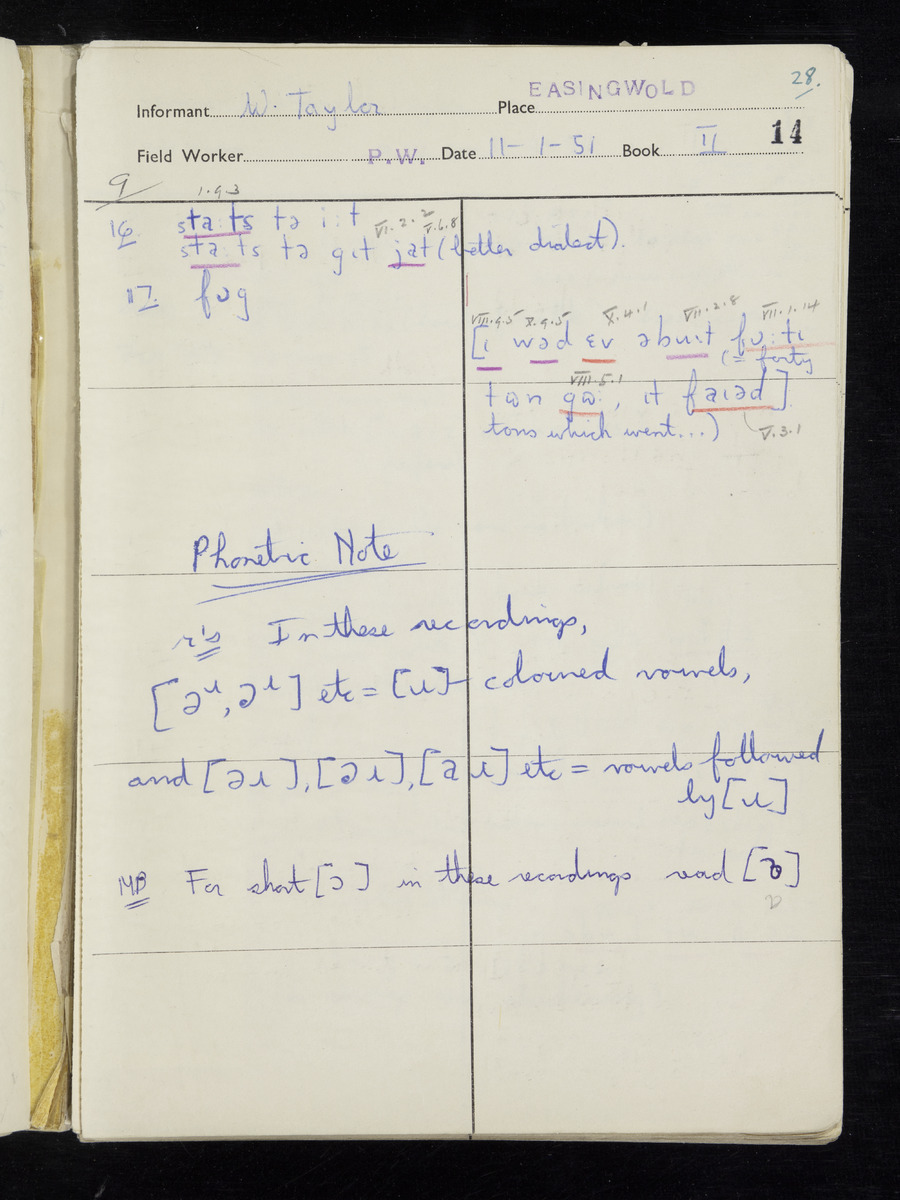 28.
EASINGWOLD
Informant W. Taylor Place
14
Field Worker P.W. Date 11-1-51 Book II
9
I.9.3
16 sta:ts tə i:t VI.2.2 V.6.8
sta:ts tə gɪt jat (better dialect).
17. fɒg
VIII.9.5 X.9.5 X.4.1 VII.2.8 VII.1.14
[ɪ wəd ɛv əbu:t fɔ:tɪ
(= forty
VIII.5.1
tɷn gɑ:, ɪt faɪəd]
tons which went...) V.3.1
Phonetic Note
r's In these recordings,
[əɹ, əɹ] etc = [ɹ]- coloured vowels,
and [əɹ], [əɹ], [aɹ] etc = vowels followed
by [ɹ]
NB For short [ɔ] in these recordings read [ɒ]
ɒ